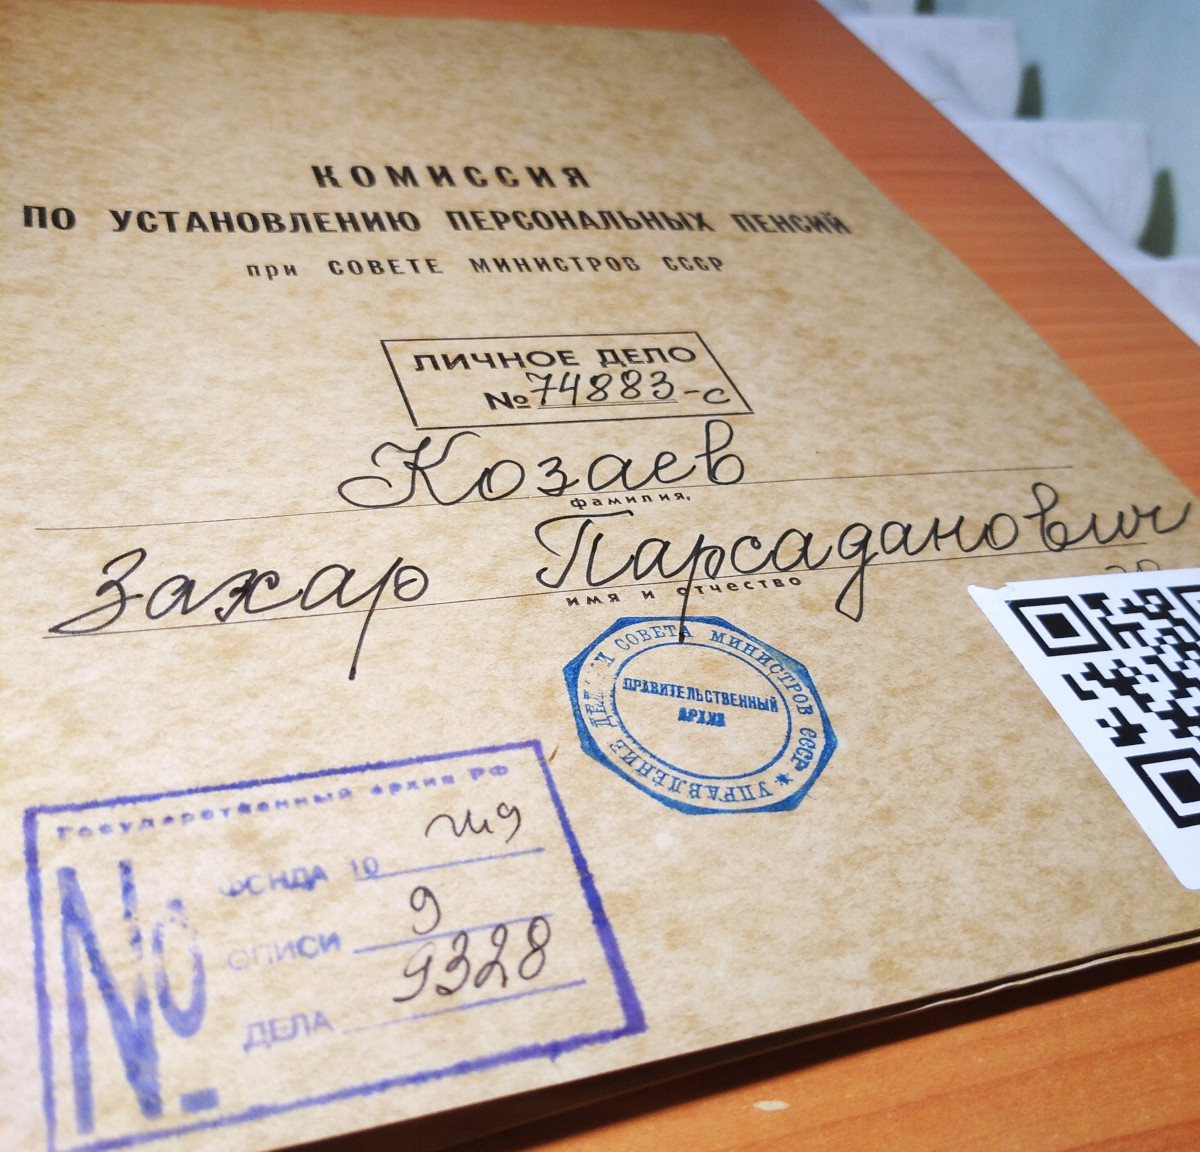 КОМИССИЯ
ПО УСТАНОВЛЕНИЮ ПЕРСОНАЛЬНЫХ ПЕНСИЙ
при СОВЕТЕ МИНИСТРОВ СССР
ЛИЧНОЕ ДЕЛО
№ 74883-с
Козаев
фамилия,
Захар Парсаданович
имя и отчество
УПРАВЛЕНИЕ ДЕЛАМИ СОВЕТА МИНИСТРОВ СССР *
ПРАВИТЕЛЬСТВЕННЫЙ
АРХИВ
Государственный архив РФ
№
ФОНДА 10
ОПИСИ 9
ДЕЛА 9328